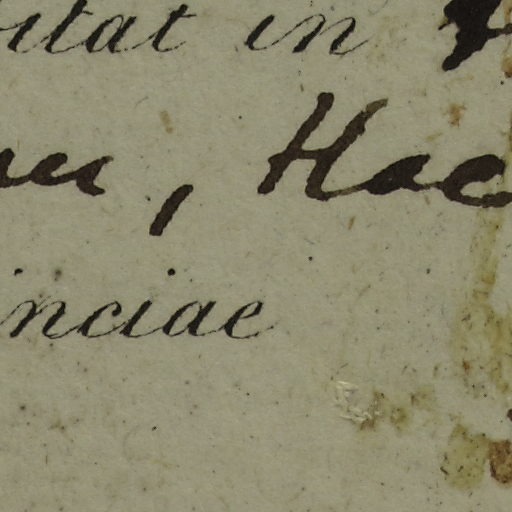 itat in
, Hae
inciae